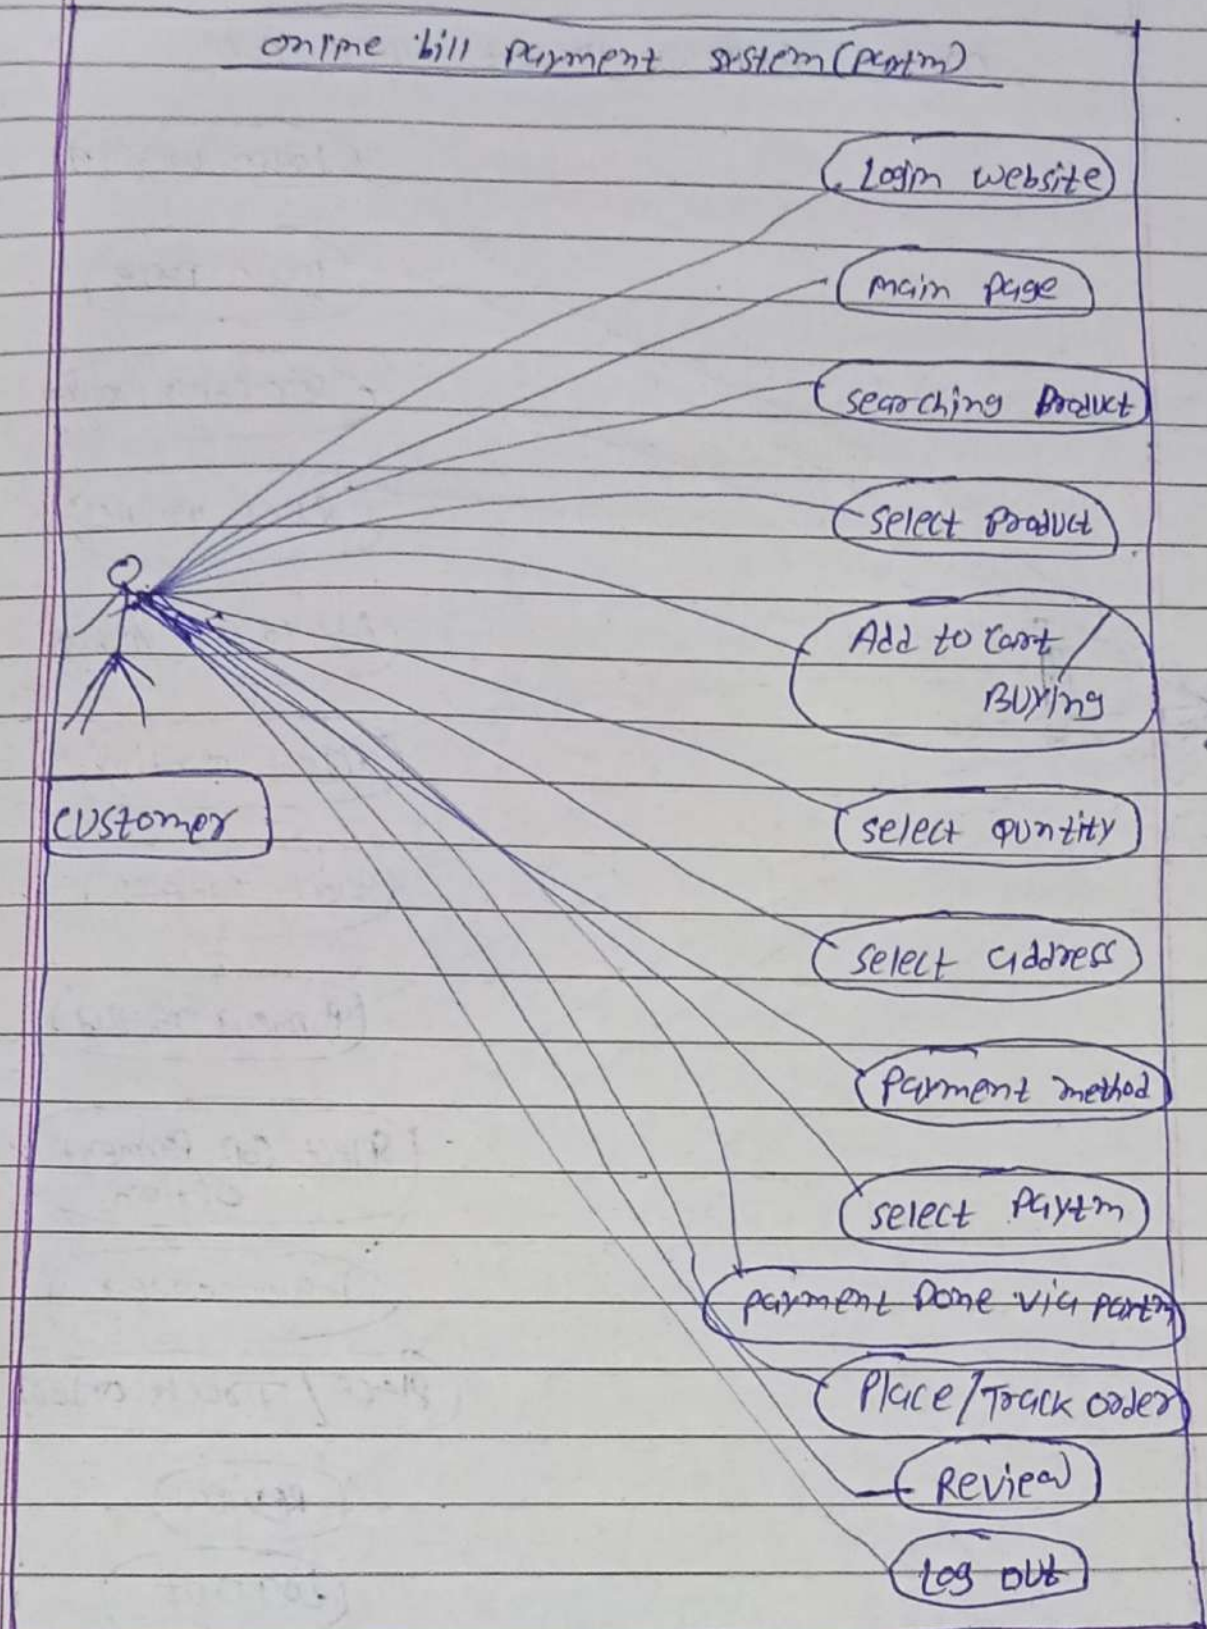 online bill payment system (paytm)
Login website
main page
searching Product
select Product
Add to cart /
BUYing
customer
select quntity
select address
Payment method
select Paytm
payment Done via paytm
Place/Track order
Review
Log out